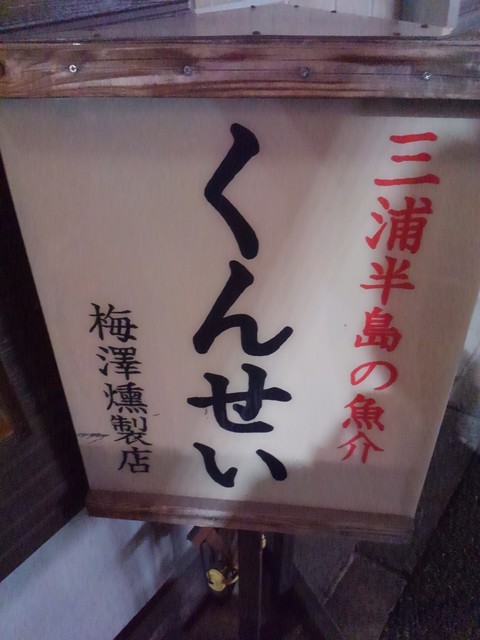 三浦半島の魚介
くんせい
梅澤燻製店